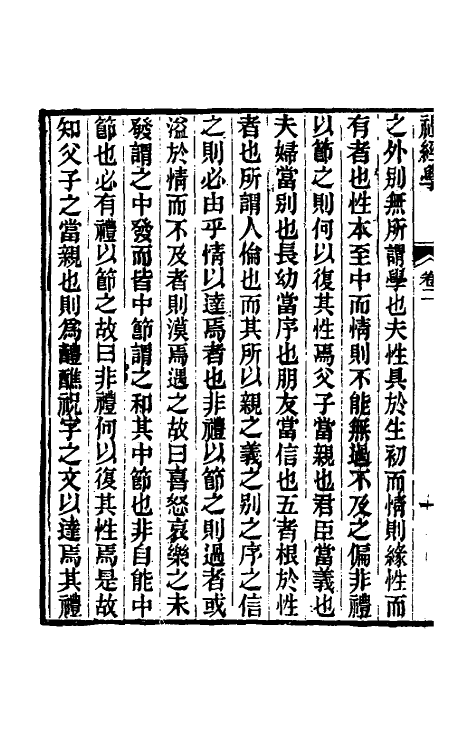 禮經學
卷二
之外別無所謂學也夫性具於生初而情則緣性而
有者也性本至中而情則不能無過不及之偏非禮
以節之則何以復其性焉父子當親也君臣當義也
夫婦當別也長幼當序也朋友當信也五者根於性
者也所謂人倫也而其所以親之義之別之序之信
之則必由乎情以達焉者也非禮以節之則過者或
溢於情而不及者則漠焉遇之故曰喜怒哀樂之未
發謂之中發而皆中節謂之和其中節也非自能中
節也必有禮以節之故曰非禮何以復其性焉是故
知父子之當親也則為醴醮祝字之文以達焉其禮